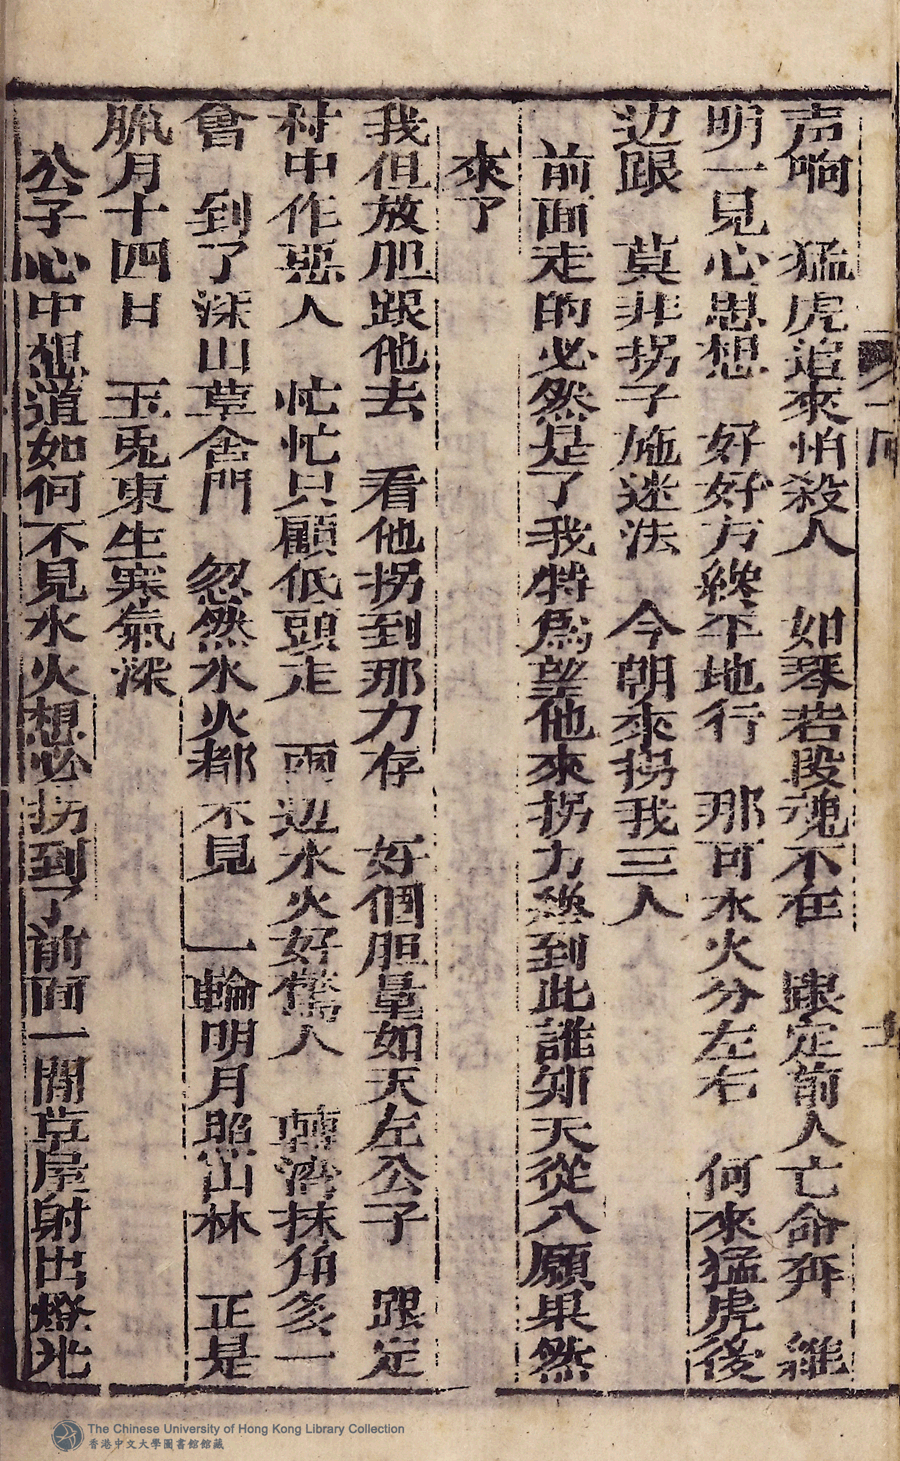 声响　猛虎追來怕殺人　如琴若段魂不在　跟定前人亡命奔　維
明一見心思想　好好方終平地行　那可水火分左右　何來猛虎後
边跟　莫非拐子施迷法　今朝來拐我三人
前面走的必然是了我特為望他來拐方終到此誰知天從人願果然
來了
我但放胆跟他去　看他拐到那方存　好個胆量如天左公子　跟定
村中作惡人　忙忙只顧低頭走　兩边水火好驚人　轉灣抹角多一
會　到了深山草舍門　忽然水火都不見　一輪明月照山林　正是
臘月十四日　玉兎東生寒氣深
公子心中想道如何不見水火想必拐到了前面一間草屋射出燈光
The Chinese University of Hong Kong Library Collection
香港中文大學圖書館館藏